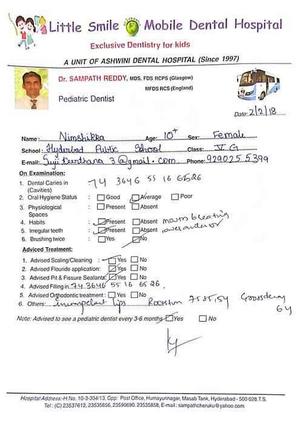 Little Smile Mobile Dental Hospital
Exclusive Dentistry for kids
A UNIT OF ASHWINI DENTAL HOSPITAL (Since 1997)
Dr. SAMPATH REDDY, MDS, FDS RCPS (Glasgow)
MFDS RCS (England)
Pediatric Dentist
Date: 2/2/18
Name: Nimshikka Age: 10+ Sex: Female
School: Hyderabad Public School Class: V G
E-mail: @gmail.com Phone:
On Examination:
1. Dental Caries in (Cavities) 74 3646 55 16 6526
2. Oral Hygiene Status : Good Average Poor
3. Physiological Spaces : Present Absent
4. Habits : Present Absent mouth breathing
5. Irregular teeth : Present Absent
6. Brushing twice : Yes No
Adviced Treatment:
1. Advised Scaling/Cleaning : Yes No
2. Advised Flouride application: Yes No
3. Advised Pit & Fissure Sealants: Yes No
4. Advised Filling in 74, 3646 55 16 6526
5. Advised Orthodontic treatment : Yes No
6. Others: Incompetent lips 64
Note: Advised to see a pediatric dentist every 3-6 months Yes No
Hospital Address: H.No. 10-3-304/13, Opp: Post Office, Humayunnagar, Masab Tank, Hyderabad - 500 028 T.S.
Tel: (C) 23537612, 23535656, 23590690, 23535858, E-mail: sampathcheruku@yahoo.com